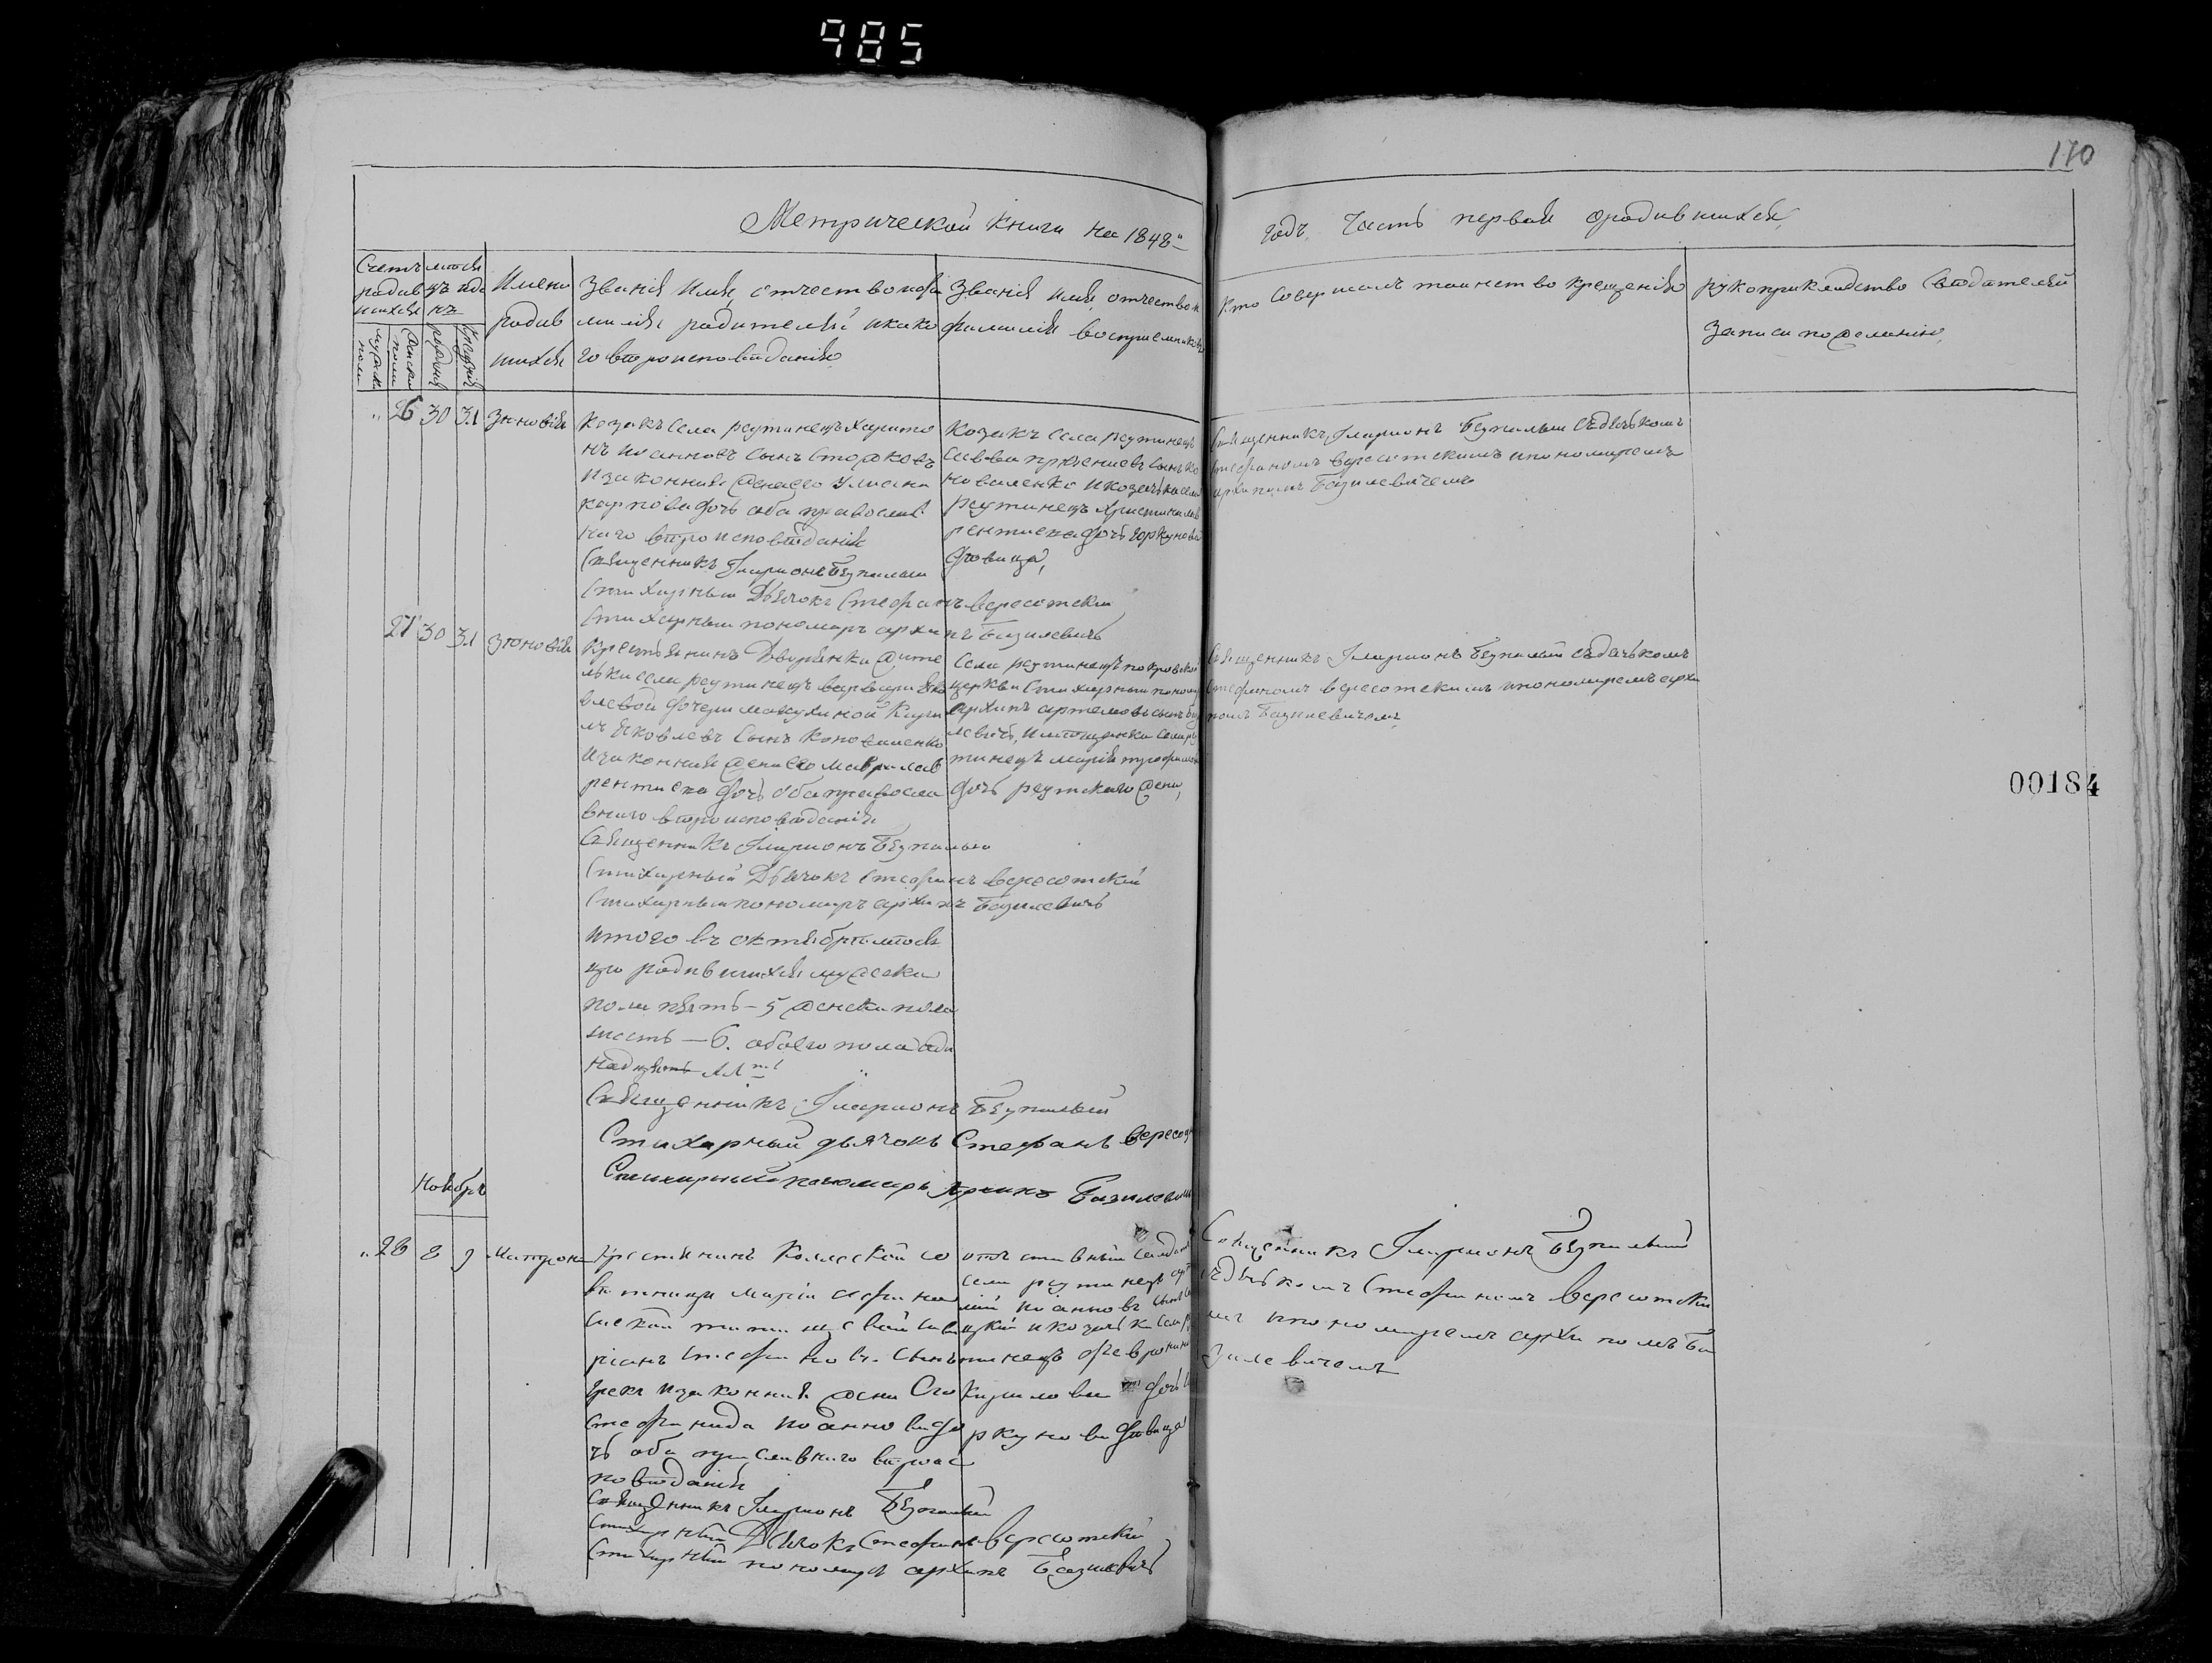 985
170
Метрической книги на 1848-
годъ, Часть первая о родившихся,
Счетъ родившихся
мѣсяцъ и день
Имена родившихся
мужеска пола
женска пола
рожденія
крещенія
Званія имя, отчество и фамилія родителей и какого вѣроисповѣданія,
Званія имя, отчество и фамилія восприемниковъ
Кто совершалъ таинство крещенія
рукоприкладство свидѣтелей записи по желанію,
" 26 30 31 Зиновія
Козакъ села реутинецъ харито
нъ иоанновъ сынъ Сторожовъ
и законная жена его Улиана
карпова дочь оба православ
наго вѣроисповѣданія
Священникъ Иларионъ Безпалый
Стихарный Дьячокъ Стефанъ вересотскій
Стихарный пономарь архипъ Базилевичь
Козакъ села реутинецъ
савва сынъ ко
новаленко и козачька села
реутинецъ Христина лав
рентиева дочь Коркунова
дѣвица,
Священникъ Иларионъ Безпалый съ дьячькомъ
стефаномъ вересотскимъ и пономаремъ
архипомъ Базилевичемъ
27 30 31 Зиновія
Крестьянинъ Дворянки жите
льки села реутинецъ варвари Яко
влевой дочери макухиной Кири
лъ Яковлевъ сынъ Коноваленко
и законная жена его Мавра лав
рентиева дочь оба правосла
внаго вѣроисповѣданія
Священникъ Иларионъ Безпалый
Стихарный Дьячокъ Стефанъ вересотскій
Стихарный пономарь архипъ Базилевичь
Села реутинецъ покровской
церкви стихарный понома
архипъ артемовъ сынъ Бази
левичь, и мѣщанка села реу
тинецъ марія трофимова
дочь реутскаго жена,
Священникъ Иларионъ Безпалый съ дьячькомъ
стефаномъ вересотскимъ и пономаремъ архи
помъ Базилевичемъ,
итого въ октябрѣ мѣся
цѣ родившихся мужеска
пола пять - 5 женска пола
шесть - 6. обоего пола оди
надцять
Священникъ Иларионъ Безпалый
Стихарный дьячокъ Стефанъ Вересот
Стихарный пономарь Архипъ Базилевичь
00184
Ноябрь
" 28 8 9 Матрона
Крестянинъ Коллеской со
вѣтници маріи стефано
сави
ріанъ стефановъ сынъ
и законная жена его
стефанида иоаннова до
чь оба православнаго вѣроис
повѣданія
Священникъ Иларионъ Безпалый
Стихарный Дьячокъ Стефанъ вересотскій
Стихарный пономарь архипъ Базилевичь
отставный салдатъ
села реутинецъ
иоанновъ сынъ
и козачька села ре
тинецъ февронія
Кирилова дочь Ко
ркунова дѣвица
Священникъ Иларионъ Безпалый
съ дьячькомъ Стефаномъ вересотски
мъ и пономаремъ архипомъ Ба
зилевичемъ